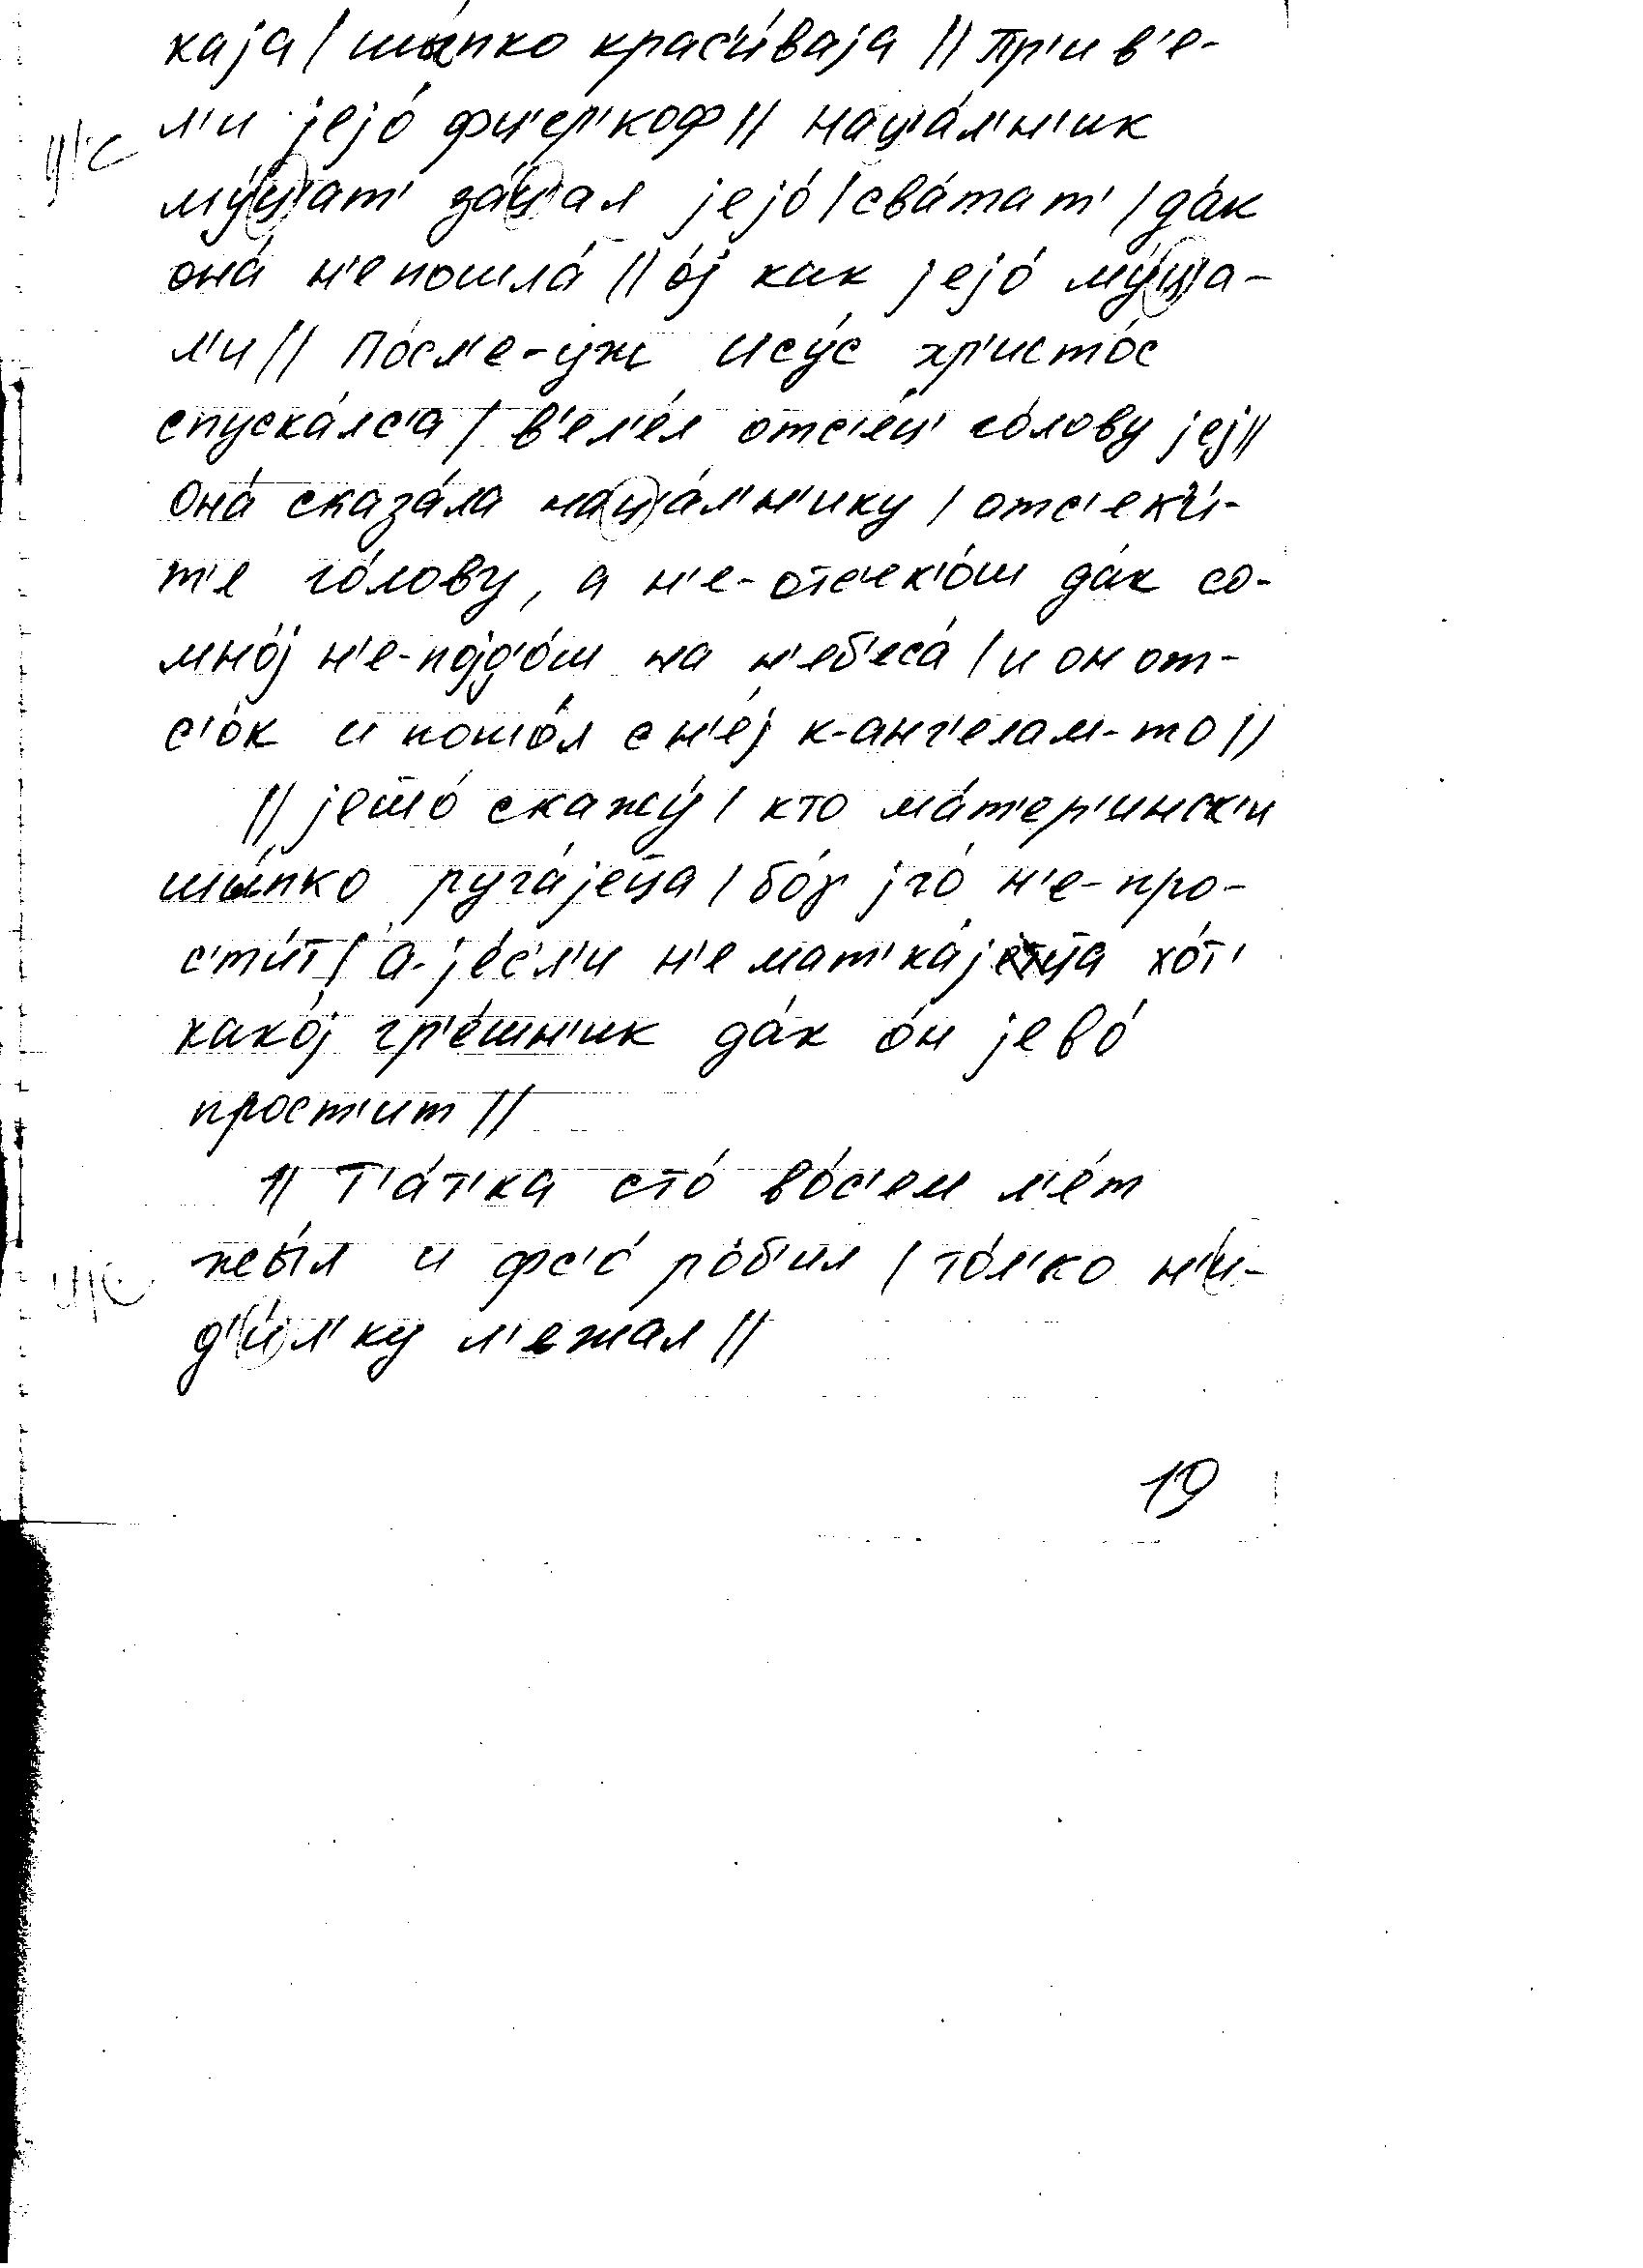 каjа / шы́пко крас'и́ваjа // Пр'ив'е-
л'и jеjо́ фц'ер'коф // нац'а́л'н'ик
ц'с
му́ц'ат' за́ц'ал jеjо́ / сва́тат' / да́к
она́ н'е пошла́ // о́j как jеjо́ му́ц'а-
л'и // По́сл'е-уж Ису́с хр'исто́с
спуска́лс'а / в'ел'е́л отс'е́ц' го́лову jеj //
Она́ сказа́ла нац'а́л'н'ику / отс'ек'и́-
т'е го́лову, а н'е-отс'ек'о́ш да́к со-
мно́j н'е-поjд'о́ш на н'еб'еса́ / и он от-
с'о́к и пошо́л с н'е́j к-анг'елам-то //
// jешо́ скажу́ / кто ма́т'ер'инск'и
шы́пко руга́jеца / бо́γ jго́ н'е-про-
с'ти́т / а́-jе́с'л'и н'е мат'ка́jеца хо́т'
како́j гр'е́шн'ик да́к о́н jево́
прост'ит //
// Т'а́т'ка сто́ во́с'ем л'е́т
жы́л и фс'о́ ро́б'ил / то́л'ко н'и-
ц'с
д'и́л'ку л'ежал //
19